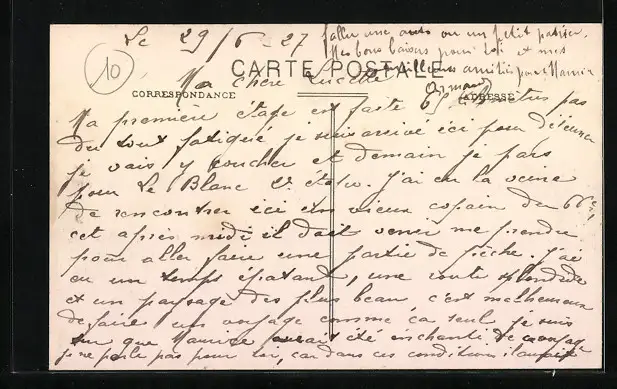 Le 29/6-27
Ma chère Lucette
CARTE POSTALE
CORRESPONDANCE
ADRESSE
Ma première étape est faite et suis pas
du tout fatigué je suis arrivé ici pour déjeuner
je vais y coucher et demain je pars
pour Le Blanc 2e étape. J'ai eu la veine
de rencontrer ici un vieux copain du 66e,
cet après midi il doit venir me prendre
pour aller faire une partie de pêche. J'ai
eu un temps épatant, une route splendide
et un paysage des plus beau c'est malheureux
de faire un voyage comme ça seul je suis
sur que Maurice aurait été enchanté de
je ne parle pas pour toi, car dans ces conditions il aurait
fallu une auto ou un petit
Mes bons baisers pour toi et mes
meilleures amitiés pour Maurice
Armand
10